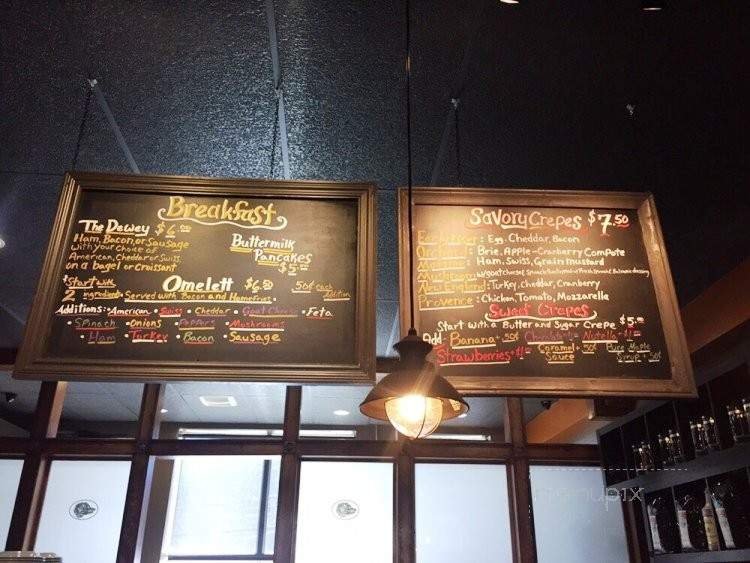 Breakfast
The Dewey $6.00
Ham, Bacon, or Sausage
with your choice of
American, Cheddar or Swiss
on a bagel or croissant
Buttermilk
Pancakes
$5
Omelett $6.50
*Start with
2 ingredients Served with Bacon and Homefries
50¢ each
Addition
Additions: •American •Swiss •Cheddar •Goat Cheese •Feta
•Spinach •Onions •Peppers •Mushrooms
•Ham •Turkey •Bacon •Sausage
Savory Crepes $7.50
: Egg, Cheddar, Bacon
Orchard : Brie, Apple-Cranberry Compote
: Ham, Swiss, Grain mustard
Mushroom
New England: Turkey, Cheddar, Cranberry
Provence : Chicken, Tomato, Mozzarella
Sweet Crepes
Start with a Butter and Sugar Crepe $5.00
Add- Banana + 50¢ Nutella +
Strawberries + Caramel + 50¢ Pure Maple
Sauce Syrup + 50¢
menupix